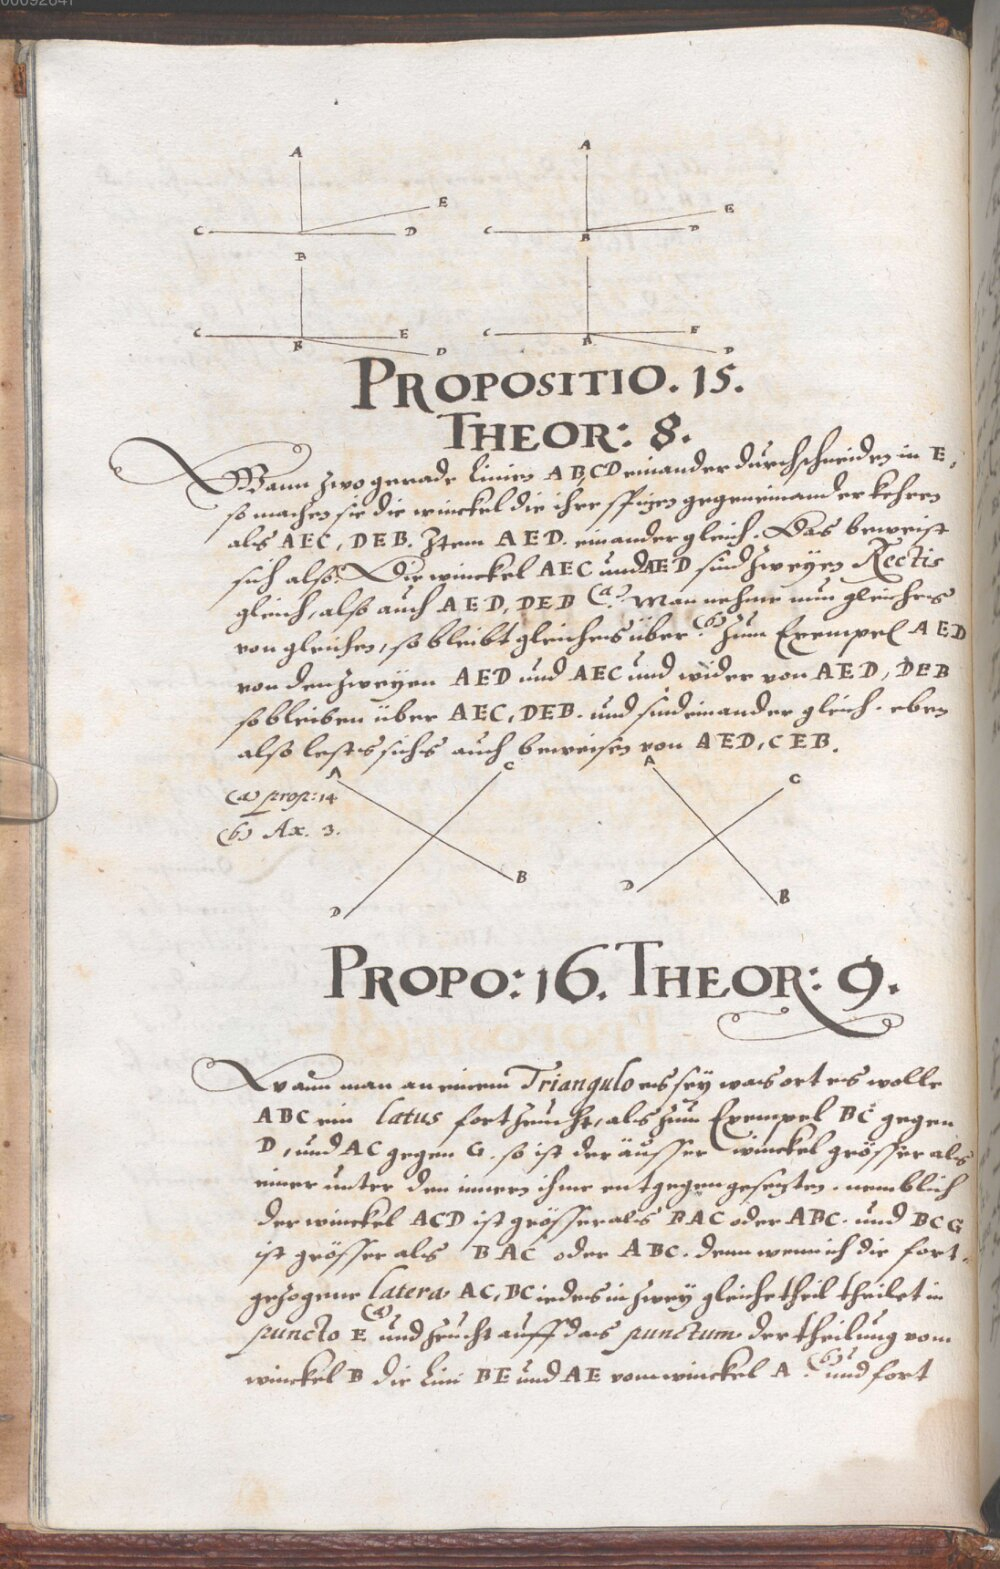 A A
E E
C D C B D
B
C B E C A E
D D
PROPOSITIO. 15.
THEOR: 8.
Wann zwo gerade Linien AB, CD einander durchschneiden in E,
so machen sie die winckel die ihre spitzen gegeneinander kehren
als AEC, DEB. Item AED. einander gleich. Das beweist
sich also: Die winckel AEC und AED sind zweyen Rectis
gleich, also auch AED, DEB (a). Man nehme nun gleiches
von gleichen, so bleibt gleiches über (b). Zum Exempel AED
von den zweyen AED und AEC und wider von AED, DEB
so bleiben über AEC, DEB. und sind einander gleich. eben
also lests sichs auch beweisen von AED, CEB.
A C A
(a) prop: 14 C
(b) Ax. 3.
B D
D B
PROPO: 16. THEOR: 9.
Wann man an einem Triangulo es sey was ort es wolle
ABC ein latus fortzeucht, als zum Exempel BC gegen
D, und AC gegen G. so ist der äusser winckel grösser als
einer unter den innern ihme entgegengesezten. nemblich
der winckel ACD ist grösser als BAC oder ABC. und BCG
ist grösser als BAC oder ABC. denn wenn ich die fort-
gezogene latera AC, BC iedes in zwey gleiche theil theilet in
puncto E (a) und zeucht auff das punctum der theilung vom
winckel B die Lini BE und AE vom winckel A (b). und fort